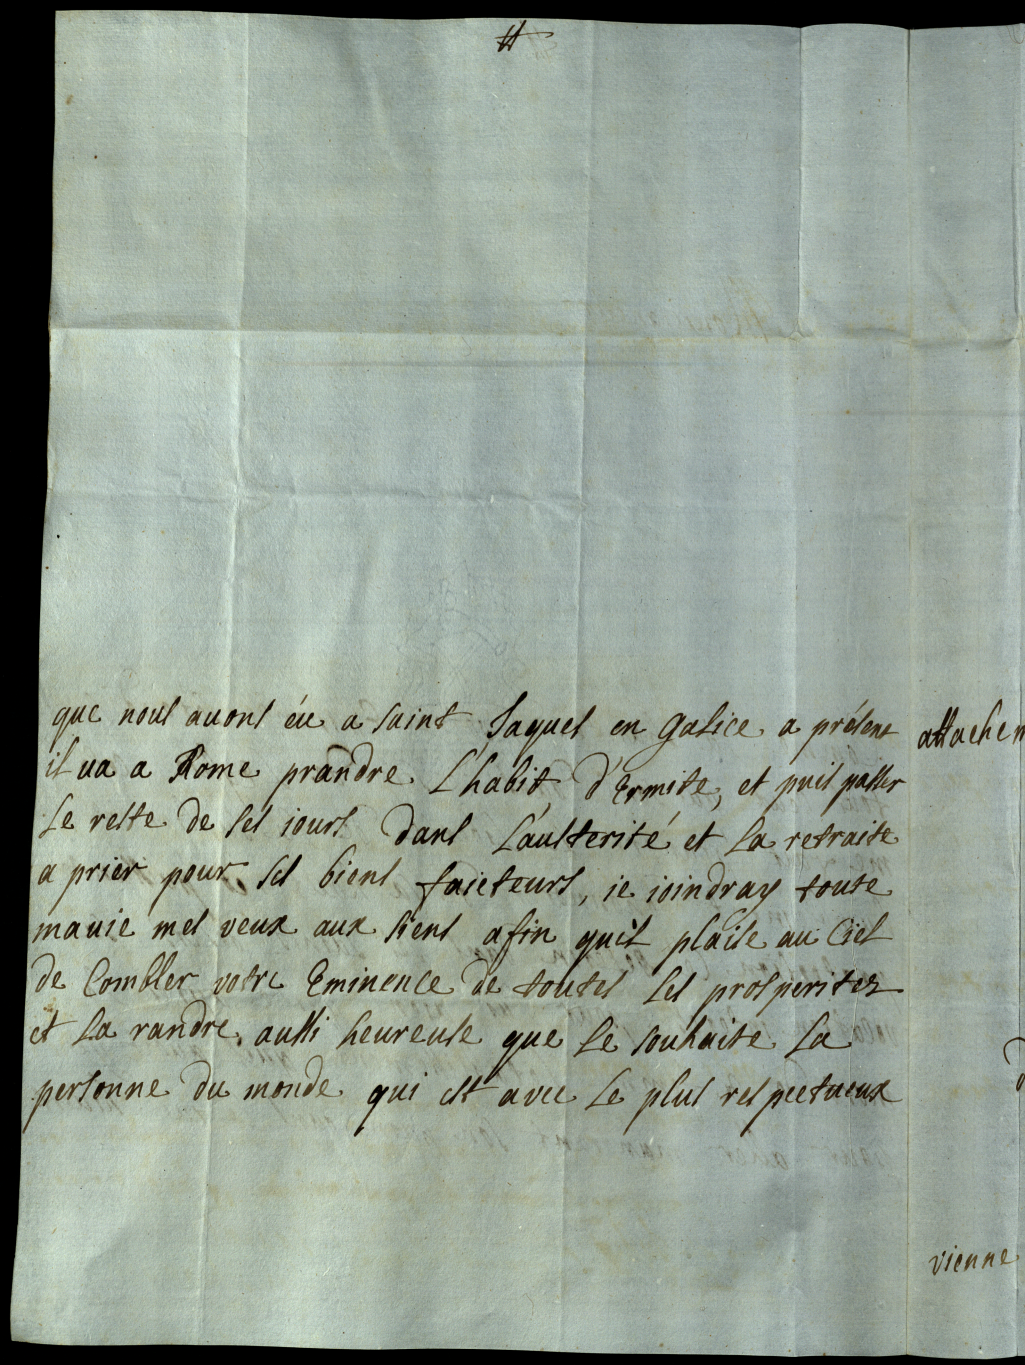 que nous auons éu a saint Jaques en galice a présent
il ua a Rome prandre L'habit d'Ermite, et puis passer
Le reste de ses iours dans L'austerité et La retraite
a prier pour ses biens faicteurs, ie ioindray toute
mauie mes veux aux siens afin quil plaise au Ciel
de Combler votre Eminence de toutes ses prosperitez
et La randre aussi heureuse que Le souhaite La
personne du monde qui est avec Le plus respectueux
attachem
vienne